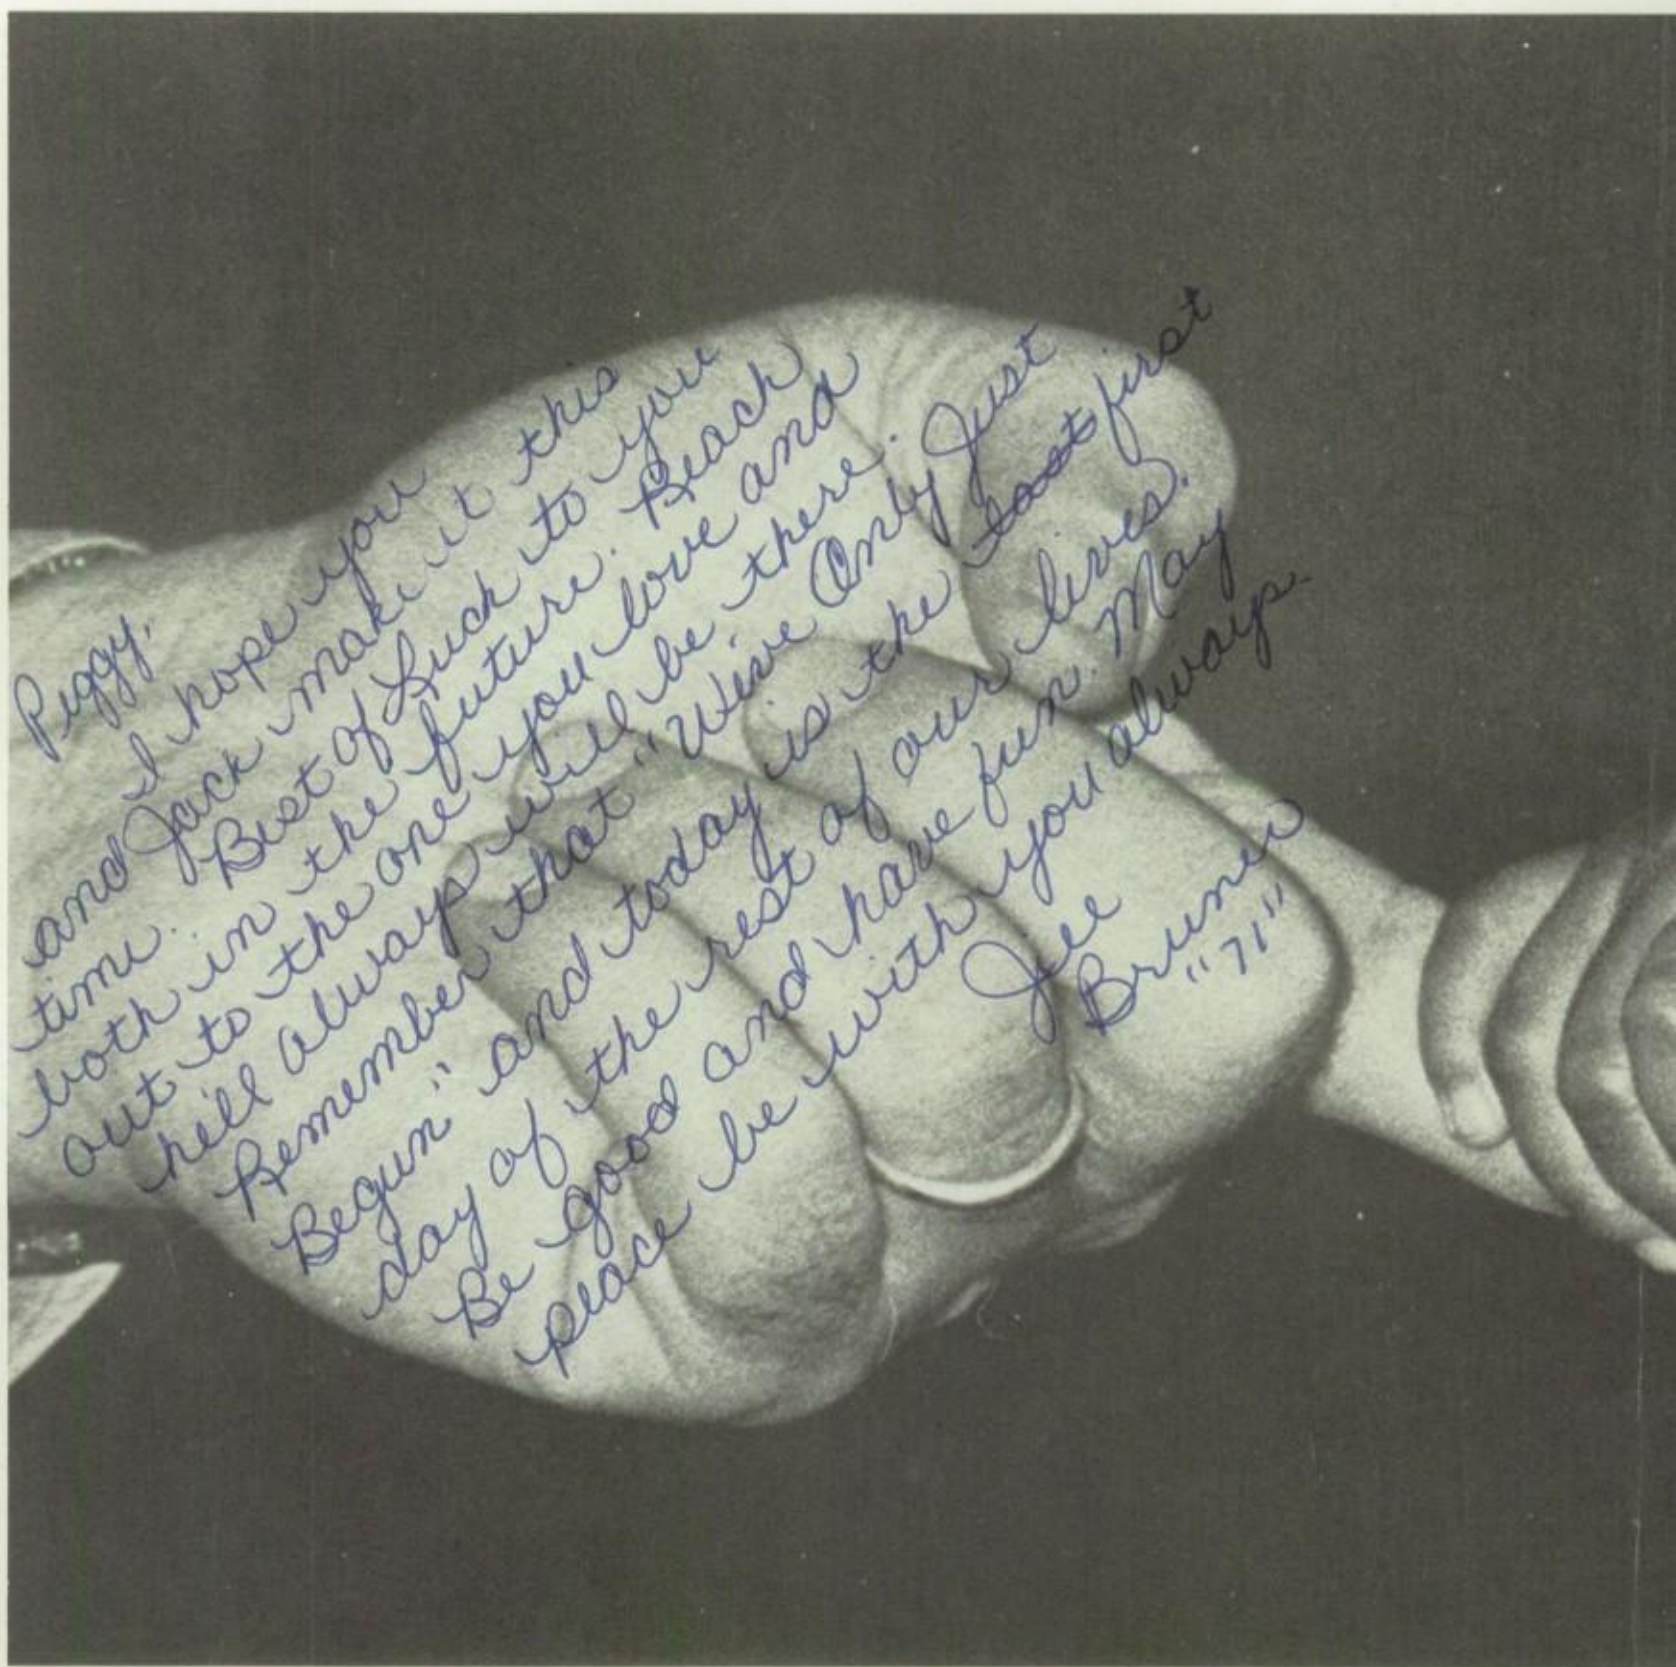 Peggy,
I hope you this
and Jack make it this
time. Best of Luck to you
both in the future. Reach
out to the one you love and
he'll always will be there.
Remember that "We've Only Just
Begun" and today is the last first
day of the rest of our lives.
Be good and have fun. May
peace be with you always.
Jee
Bruner
"71"